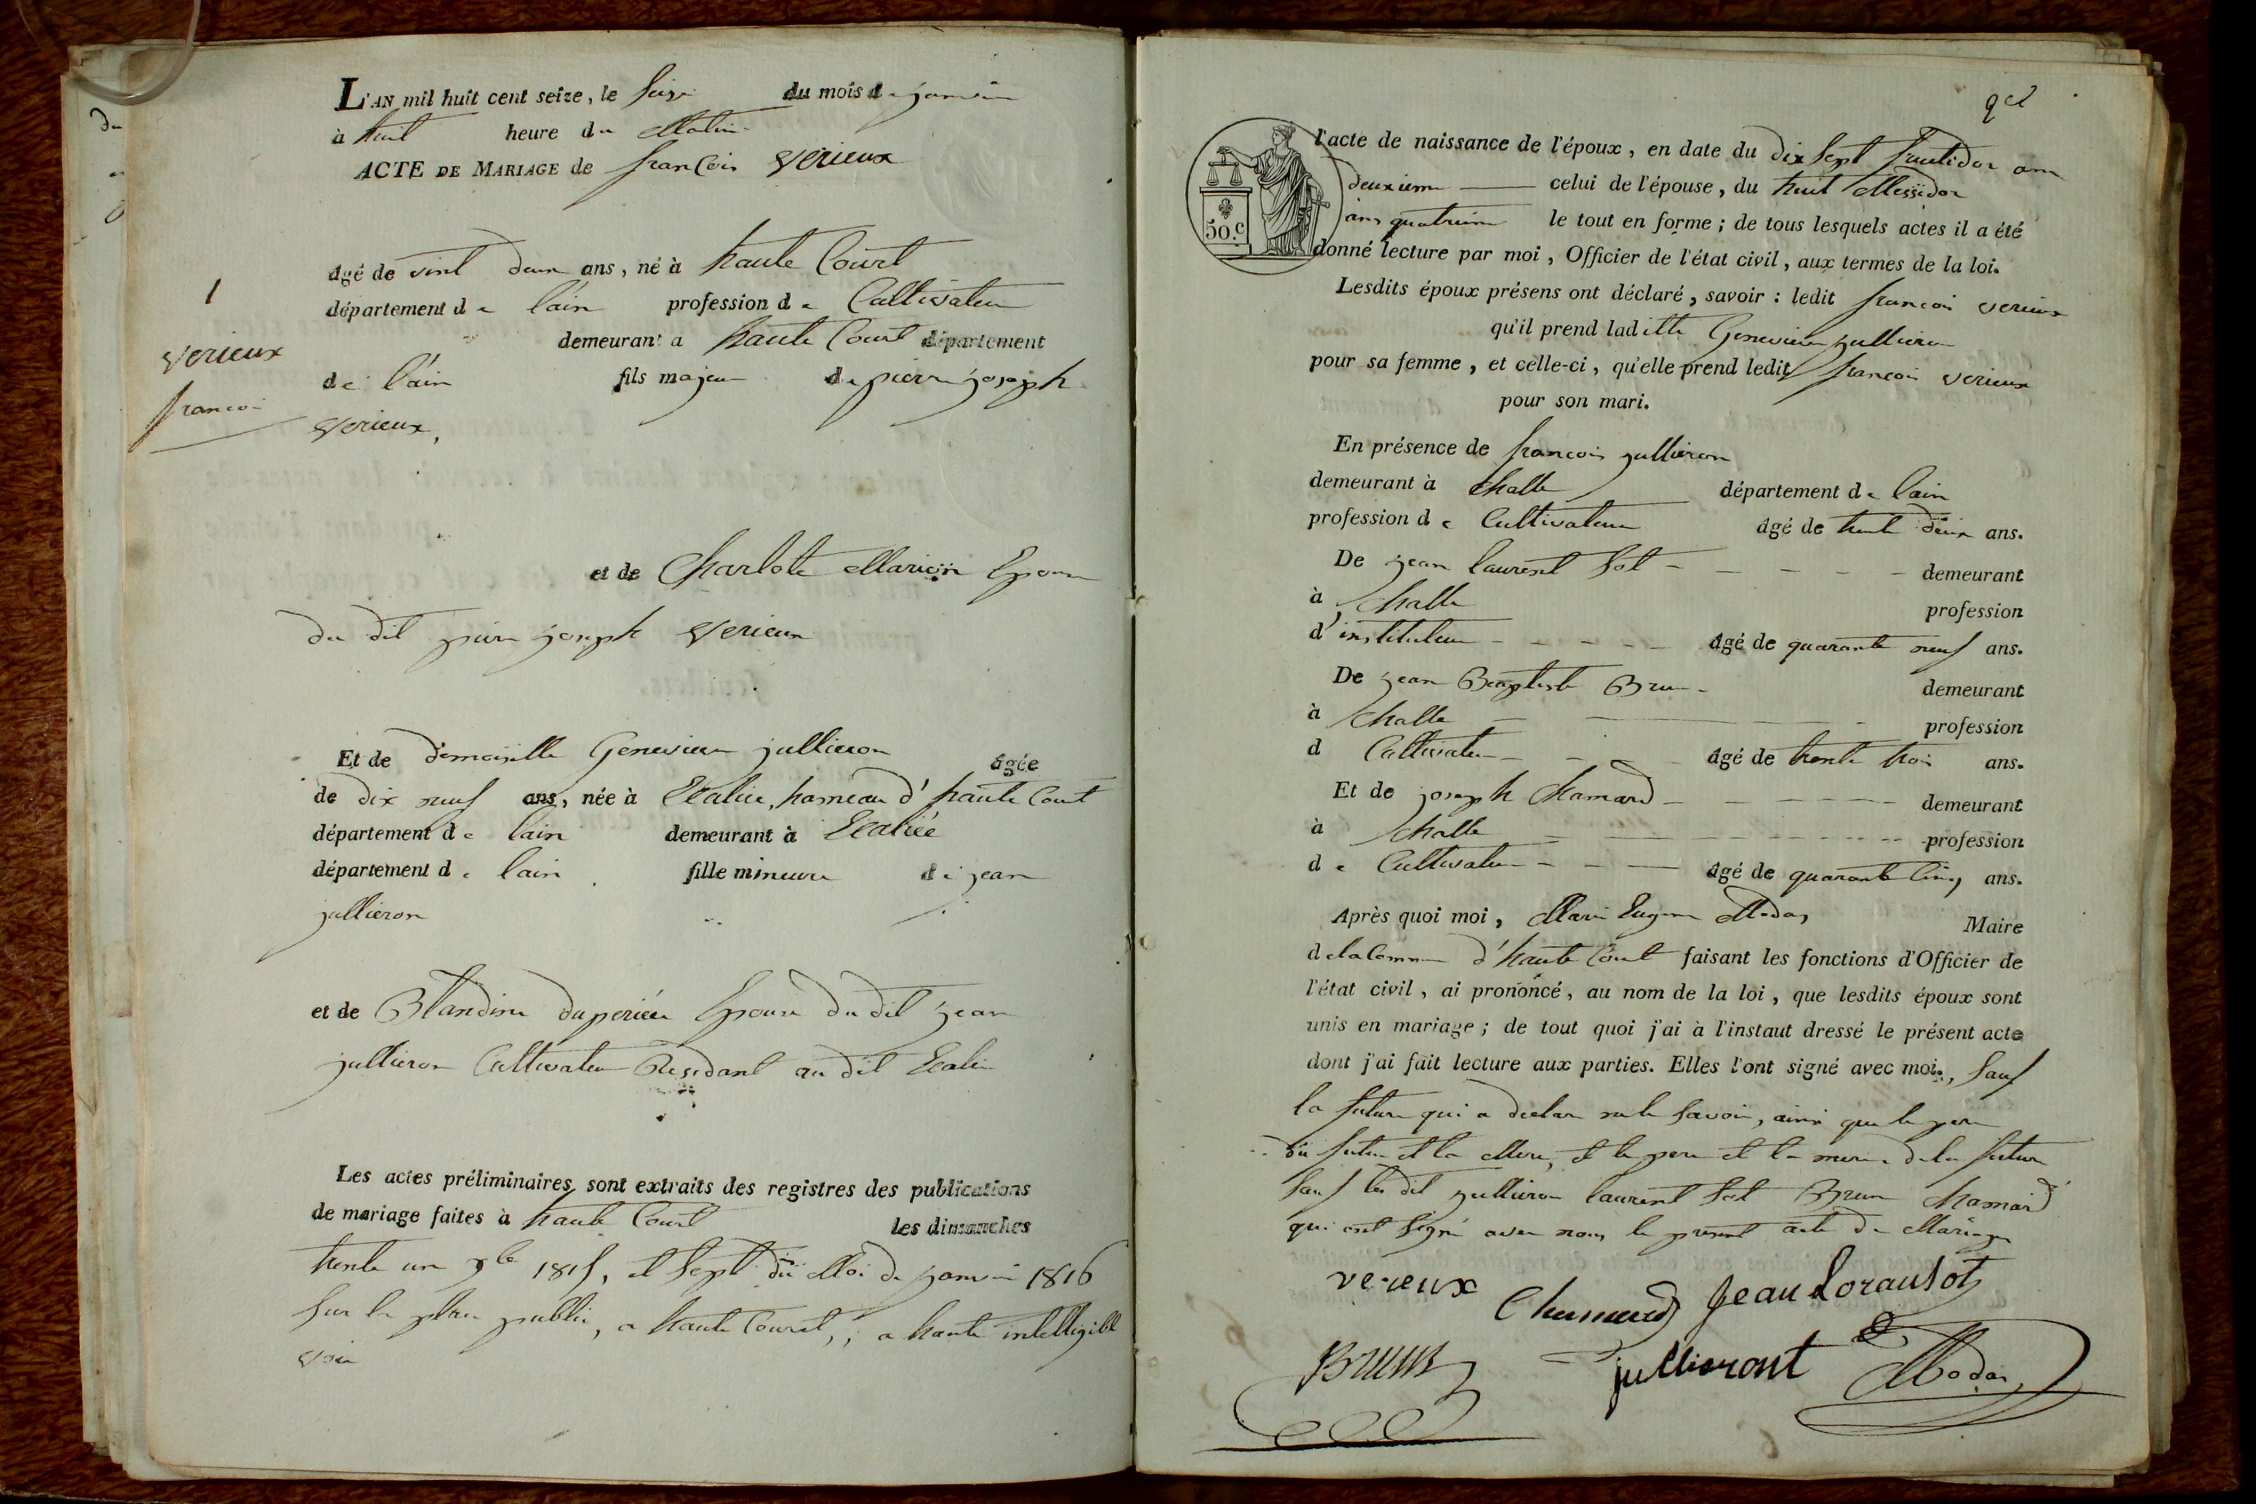 L'AN mil huit cent seize, le seize du mois de janvier
à huit heure du Matin
ACTE DE MARIAGE de françois verieux
âgé de vint deux ans, né à haute Court
département de l'ain profession de Cultivateur
demeurant a haute Court département
de l'ain fils majeur de pierre joseph
verieux,
1
verieux
francois
et de Charlote Marion Epouse
du dit pierre joseph verieux
Et de demoiselle Genevieve jullieron âgée
de dix neuf ans, née à hameau d'haute Court
département de lain demeurant à
département de lain fille mineure de jean
jullieron
et de Blandine Epouse du dit jean
jullieron Cultivateur Residant au dit
Les actes préliminaires sont extraits des registres des publications
de mariage faites à haute Court les dimanches
trente un 1815, et sept du Moi de janvier 1816
sur la place public, a haute Court, a haute intelligible
voix
l'acte de naissance de l'époux, en date du dix sept fructidor ann
50.c
deuxieme celui de l'épouse, du huit Messidor
ans quatrieme le tout en forme; de tous lesquels actes il a été
donné lecture par moi, Officier de l'état civil, aux termes de la loi.
Lesdits époux présens ont déclaré, savoir: ledit francois verieux
qu'il prend laditte Genevieve jullieron
pour sa femme, et celle-ci, qu'elle prend ledit francois verieux
pour son mari.
En présence de francois jullieron
demeurant à Challe département de lain
profession de Cultivateur âgé de trente deux ans.
De jean laurent Sot demeurant
à Challe profession
d'instituteur âgé de quarante neuf ans.
De jean Baptiste Brun demeurant
à Challe profession
d Cultivateur âgé de trente trois ans.
Et de joseph Chamard demeurant
à Challe profession
de Cultivateur âgé de quarante Cinq ans.
Après quoi moi, Marie Eugene Modas Maire
de la Commune d'haute Court faisant les fonctions d'Officier de
l'état civil, ai prononcé, au nom de la loi, que lesdits époux sont
unis en mariage; de tout quoi j'ai à l'instaut dressé le présent acte
dont j'ai fait lecture aux parties. Elles l'ont signé avec moi, sauf
la future qui a declare ne le savoir, ainsi que le pere
du futur et la Mere, et le pere et la mere de la future
sauf les dit jullieron laurent Sot Brun Chamard
qui ont signé avec nous le present acte de Mariage
verieux Chamard Jean Loransot
Brun jullieront Modas